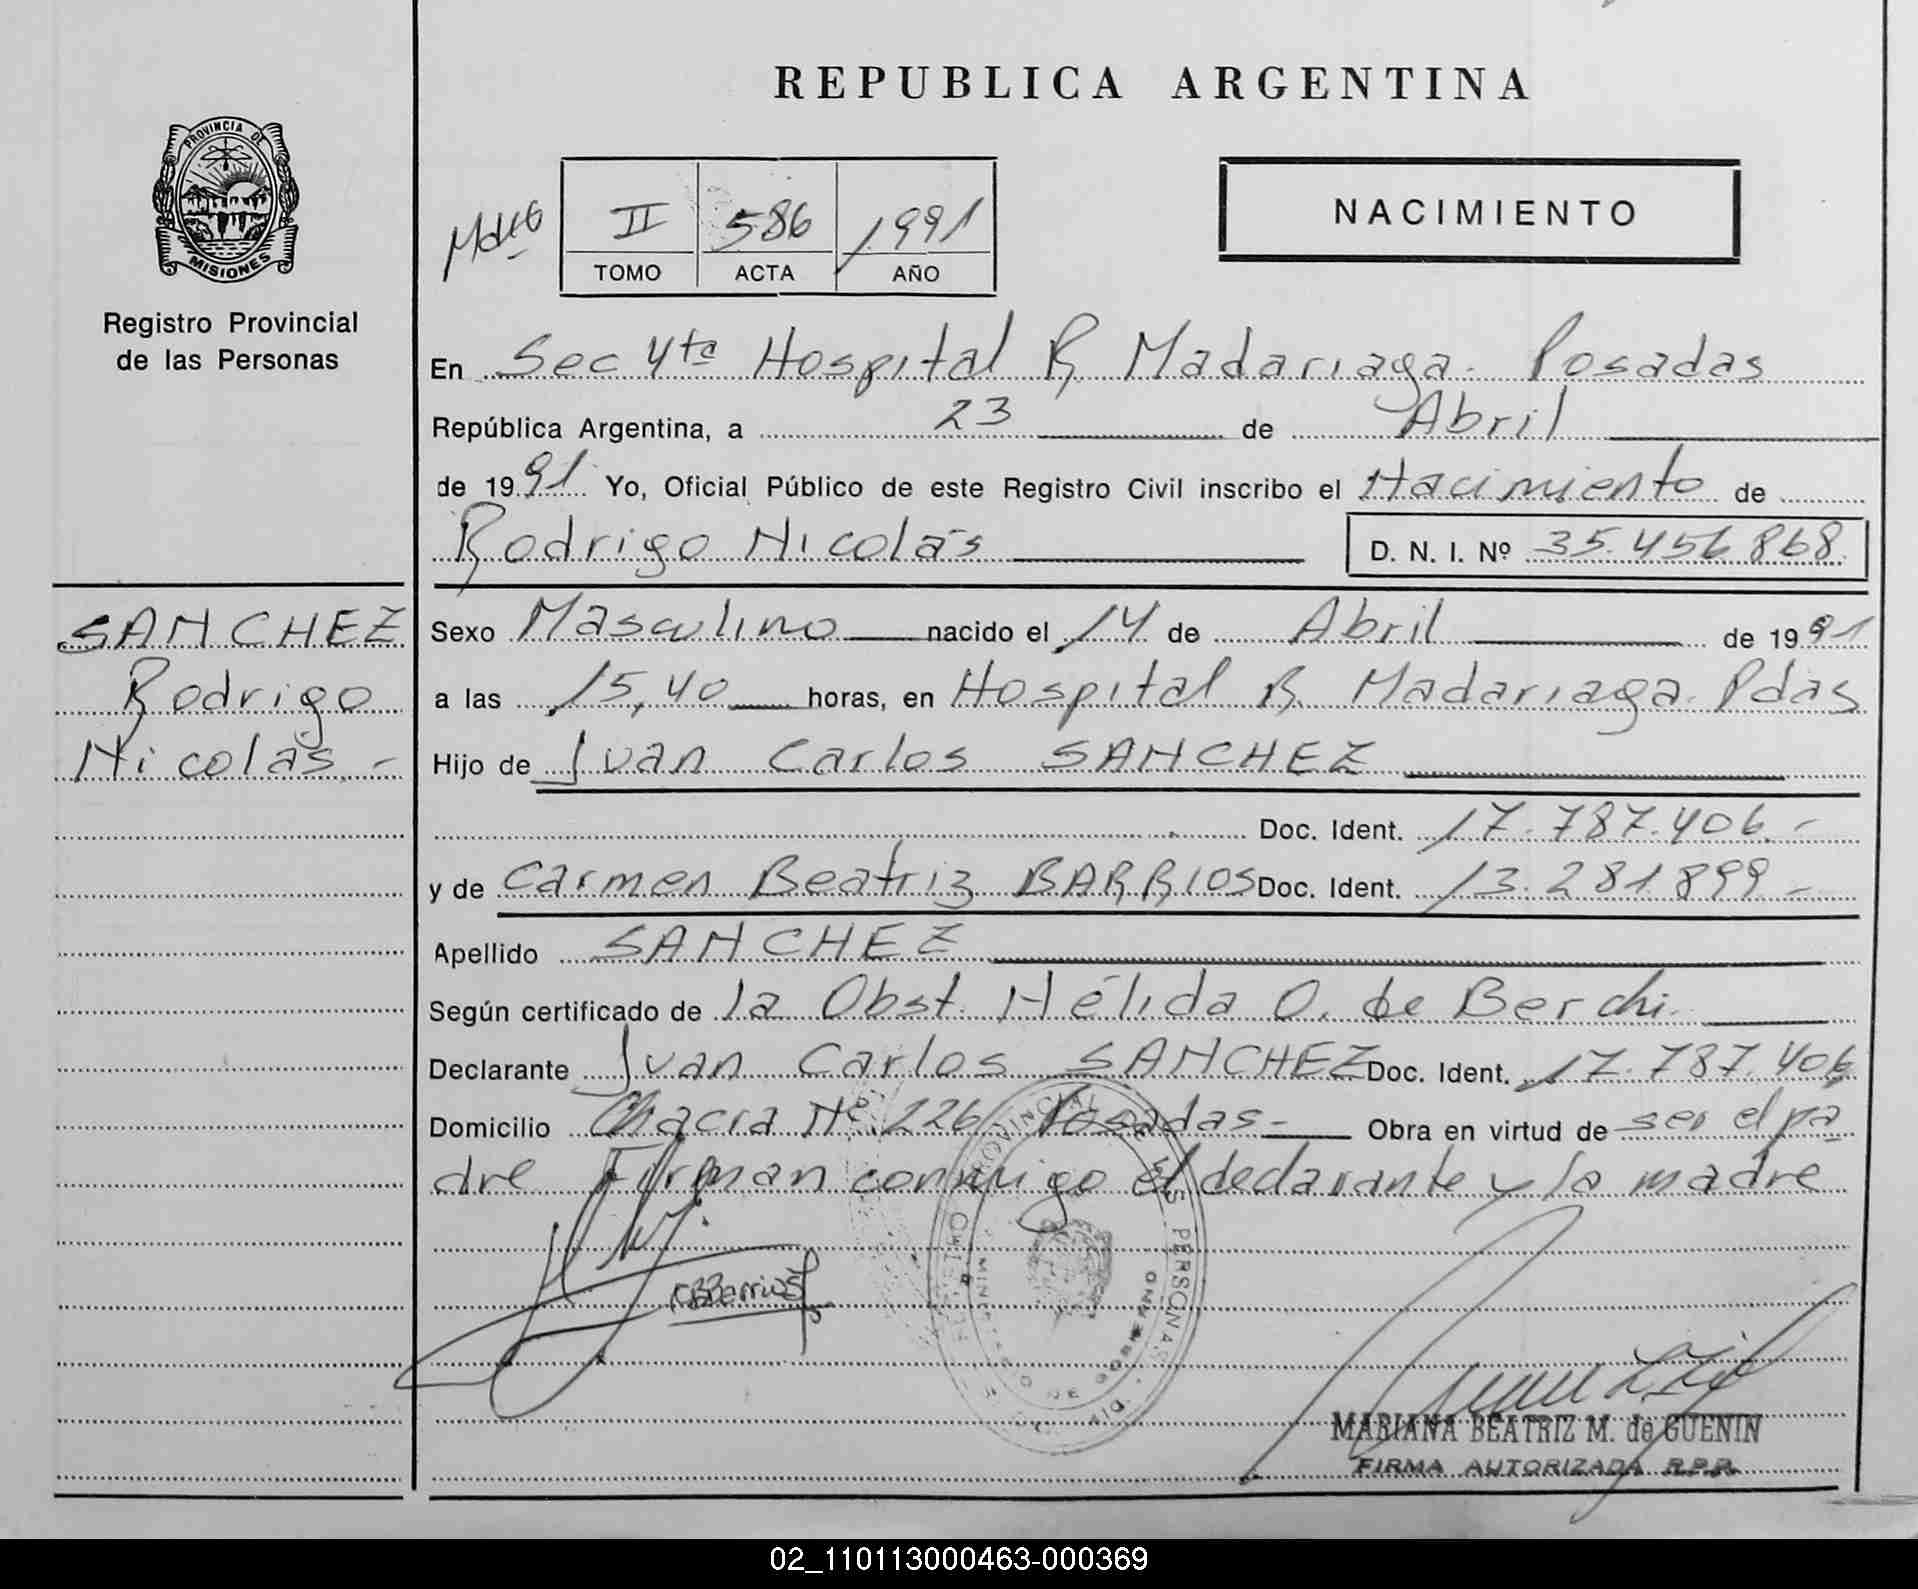 REPUBLICA ARGENTINA
PROVINCIA DE
MISIONES
Registro Provincial
de las Personas
II 586 1991
TOMO ACTA AÑO
NACIMIENTO
En Sec 4ta Hospital R Madariaga. Posadas
República Argentina, a 23 de Abril
de 1991. Yo, Oficial Público de este Registro Civil inscribo el Nacimiento de
Rodrigo Nicolás D. N. I. Nº 35.456.868.
SANCHEZ
Rodrigo
Nicolás -
Sexo Masculino nacido el 14 de Abril de 1991
a las 15,40 horas, en Hospital R. Madariaga. Pdas
Hijo de Juan Carlos SANCHEZ
Doc. Ident. 17.787.406.-
y de Carmen Beatriz BARRIOS Doc. Ident. 13.281.899-
Apellido SANCHEZ
Según certificado de la Obst. Hélida O. de Berchi.
Declarante Juan Carlos SANCHEZ Doc. Ident. 17.787.406
Domicilio Chacra Nº 226 Posadas- Obra en virtud de ser el pa-
dre Firman conmigo el declarante y la madre
PROVINCIAL DE LAS PERSONAS
MINISTERIO DE GOBIERNO
CBBarrios
MARIANA BEATRIZ M. de GUENIN
FIRMA AUTORIZADA R.P.P.
02_110113000463-000369